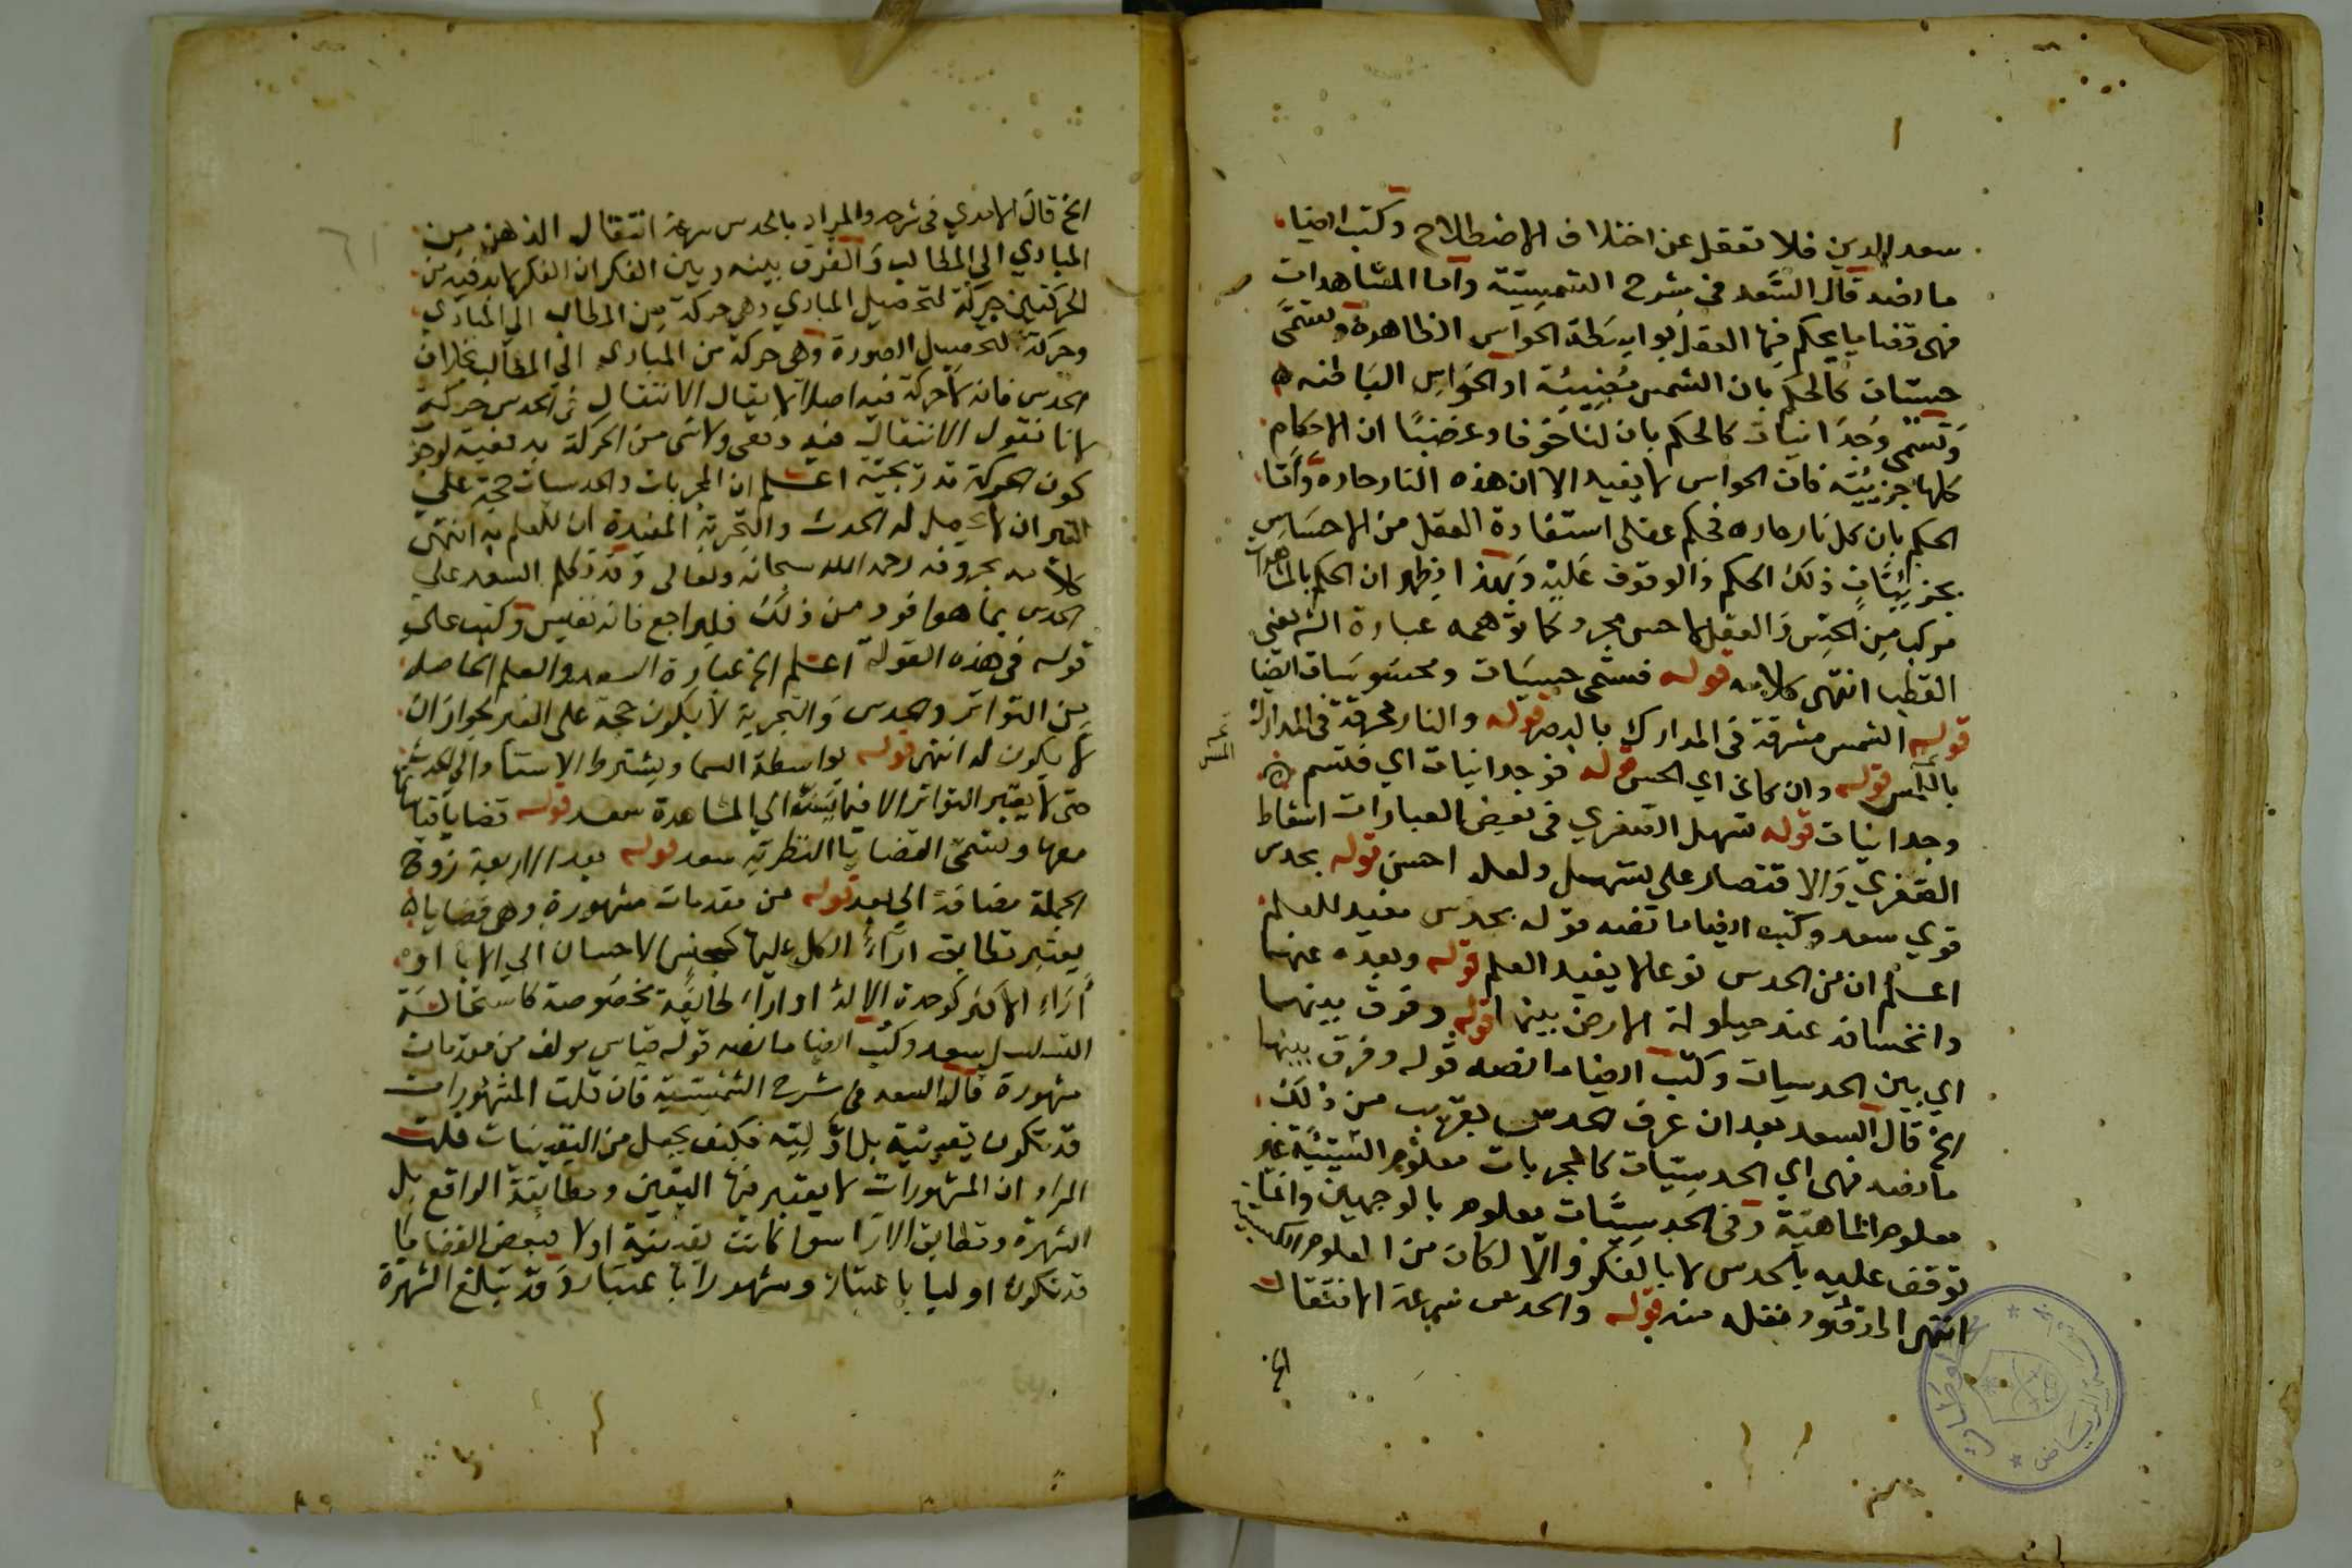 سعد الدين فلا تغفل عن اختلاف الاصطلاح وكتب ايضا
ما نصه قال السعد في شرح الشمسية واما المشاهدات
فهي قضايا يحكم فيها العقل بواسطة الحواس الظاهرة وتسمى
حسيات كالحكم بان الشمس مضيئة او الحواس الباطنه
وتسمى وجدانيات كالحكم بان لنا خوفا وغضبا ان الاحكام
كلها جزئية فان الحواس لا يفيد الا ان هذه النار حارة واما
الحكم بان كل نار حاره فحكم عقلي استفادة العقل من الاحساس
بجزئيات ذلك الحكم والوقوف عليه وبهذا يظهر ان الحكم بالمشاهدات
مركب من الحس والعقل لا حس مجرد كما توهمه عبارة الش يعني
القطب انتهى كلامه قوله فسمى حسيات ومحسوسات ايضا
قوله الشمس مشرقة في المدارك بالبصر قوله والنار محرقة في المدارك
باللمس قوله وان كان اي الحس قوله فوجدانيات اي فلتسم
وجدانيات قوله سهل الصغرى في بعض العبارات اسقاط
الصغرى والاقتصار على سهل ولعله احسن قوله بحدس
قوي سعد وكتب ايضا ما نصه قوله بحدس مفيد للعلم
اعلم ان من الحدس نوعا لا يفيد العلم قوله وبعده عنها
وانخسافه عند حيلولة الارض بينهما قوله وفرق بينهما
اي بين الحدسيات وكتب ايضا ما نصه قوله وفرق بينهما
الخ قال السعد بعد ان عرف الحدس بقريب من ذلك
ما نصه فهي اي الحدسيات كالمجربات معلوم السببية غير
معلوم الماهية وفي الحدسيات معلوم بالوجهين وانما
توقف عليه بالحدس لا بالفكر والا لكان من العلوم الكسبية
انتهى المراد نقله منه قوله والحدس سرعة الانتقال
الخ
الخ قال الامدي في شرحه والمراد بالحدس سرعة انتقال الذهن من
المبادي الى المطالب والفرق بينه وبين الفكر ان الفكر لا بد فيه من
الحركتين حركة لتحصيل المبادي وهي حركة من المطالب الى المبادي
وحركة لتحصيل الصورة وهي حركة من المبادي الى المطالب بخلاف
الحدس فانه لا حركة فيه اصلا لا يقال الانتقال في الحدس حركة
لانا نقول الانتقال فيه دفعي ولا شي من الحركة بدفعية لوجوب
كون الحركة تدريجية اعلم ان المجربات والحدسيات حجة على
الغير ان لم يحصل له الحدس والتجربة المفيدة ان للعلم به انتهى
كلامه بحروفه رحمه الله سبحانه وتعالى وقد تكلم السعد على
الحدس بما هو افود من ذلك فليراجع فانه نفيس وكتب على
قوله في هذه القوله اعلم الخ عبارة السعد والعلم الحاصل
من التواتر والحدس والتجربة لا يكون حجة على الغير لجواز ان
لا يكون له انتهى قوله بواسطة السما ويشترط الاستناد الى الحس
حتى لا يعتبر التواتر الا فيما يستند الى المشاهدة سعد قوله قضايا قياساتها
معها وتسمى القضايا النظرية سعد قوله بعد الاربعة زوج
الجملة مضافة الى بعد قوله من مقدمات مشهورة وهي قضايا
يعتبر تطابق اراء الكل عليها كحسن الاحسان الى الابا او
اراء الاكثر كوحدة الاله او اراء طائفة مخصوصة كاستحالة
التسلسل سعد وكتب ايضا ما نصه قوله قياس مولف من مقدمات
مشهورة قال السعد في شرح الشمسية فان قلت المشهورات
قد تكون يقينية بل اولية فكيف يجعل من اليقينيات قلت
المراد ان المشهورات لا يعتبر فيها اليقين ومطابقة الواقع بل
الشهرة وتطابق الارا سوا كانت يقينية اولا فبعض القضايا
قد تكون اوليا باعتبار ومشهورا باعتبار وقد تبلغ الشهرة